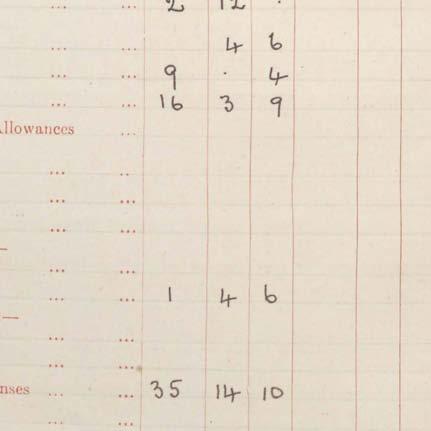 ... ... 2 12 .
... ... 4 6
... ... 9 . 4
... ... 16 3 9
Allowances ...
... ..
... ...
... ...
—
... ...
... ... 1 4 6
—
... ...
... ...
nses ... ... 35 14 10
... ...